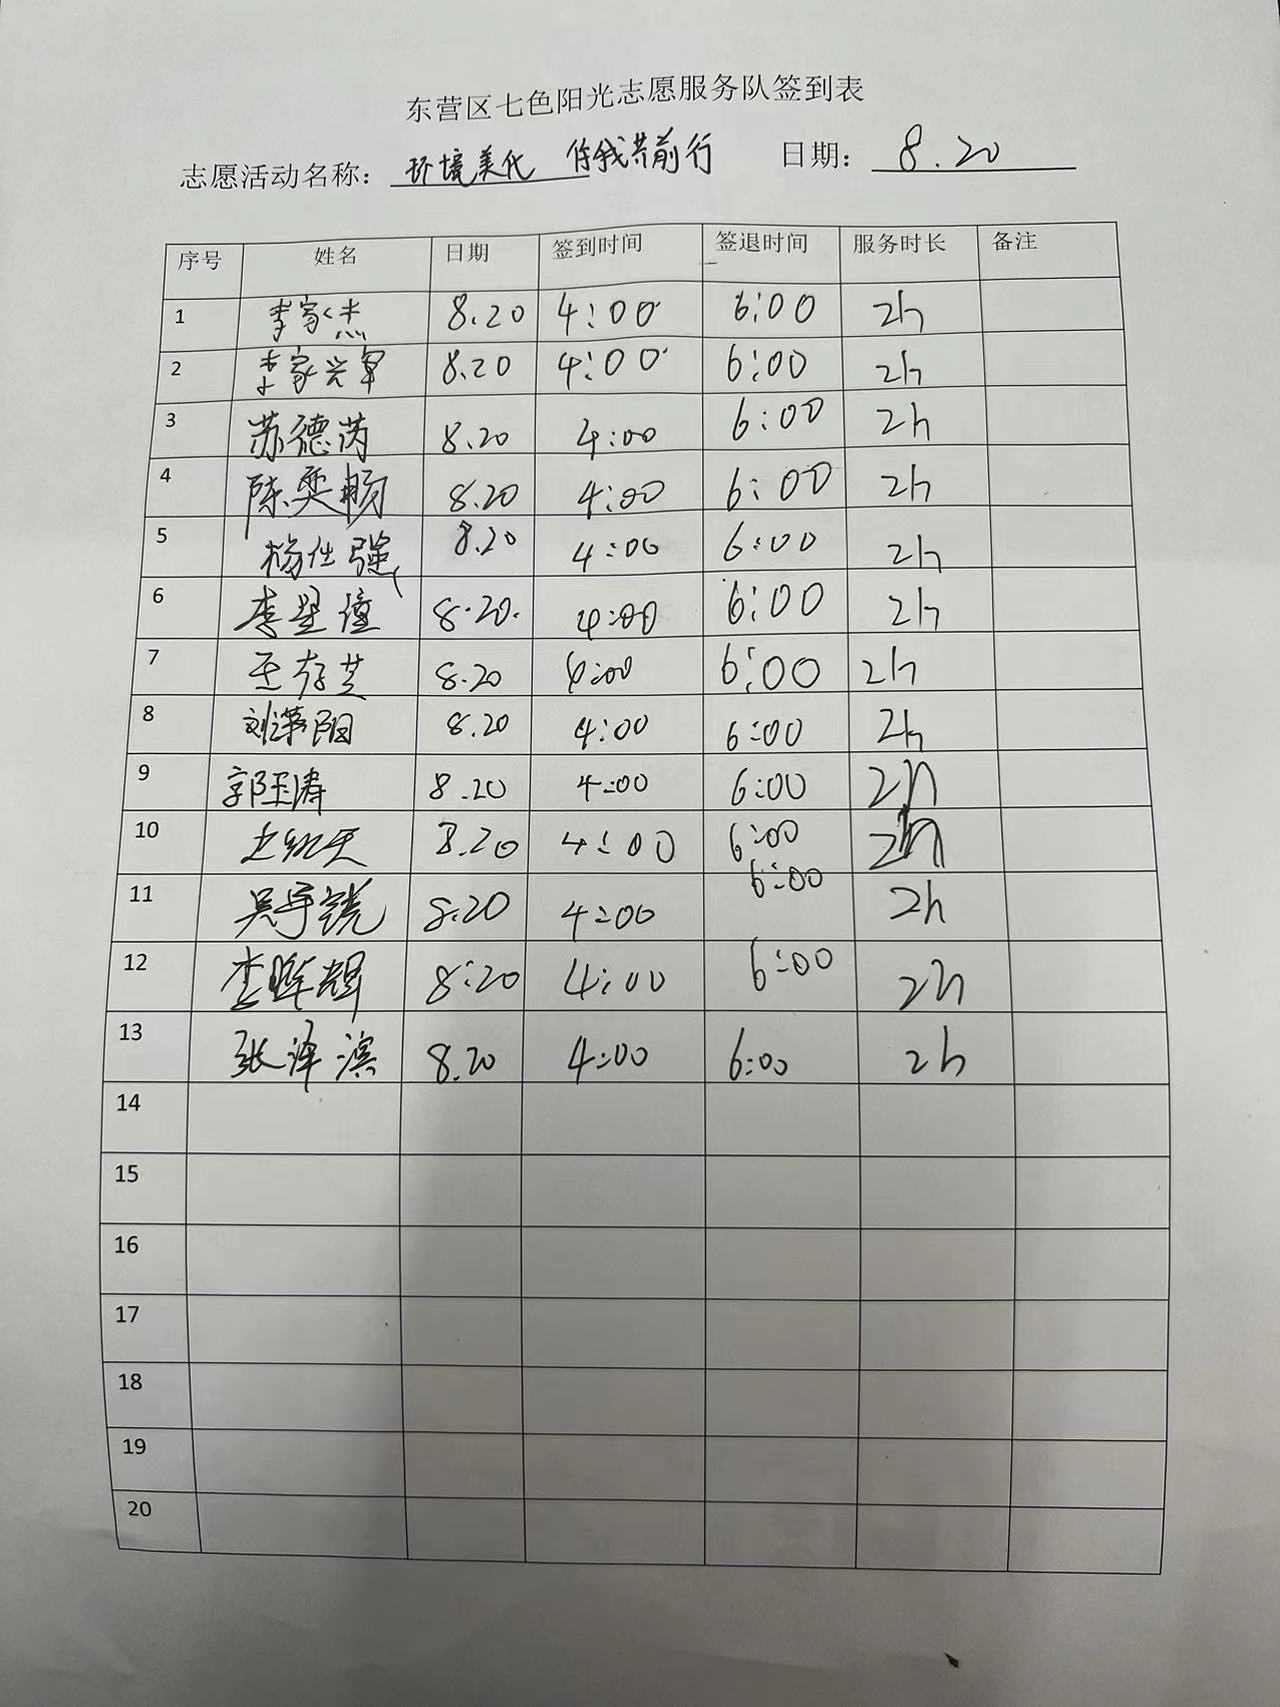 东营区七色阳光志愿服务队签到表
志愿活动名称：环境美化 你我共前行 日期：8.20
序号 姓名 日期 签到时间 签退时间 服务时长 备注
1 李家杰 8.20 4:00 6:00 2h
2 李家兴 8.20 4:00 6:00 2h
3 苏德芮 8.20 4:00 6:00 2h
4 陈奕畅 8.20 4:00 6:00 2h
5 杨仕强 8.20 4:00 6:00 2h
6 李星 8.20. 4:00 6:00 2h
7 8.20 4:00 6:00 2h
8 刘 阳 8.20 4:00 6:00 2h
9 郭玉涛 8.20 4:00 6:00 2h
10 8.20 4:00 6:00 2h
11 吴宇 8.20 4:00 6:00 2h
12 李晖 8:20 4:00 6:00 2h
13 张泽滨 8.20 4:00 6:00 2h
14
15
16
17
18
19
20